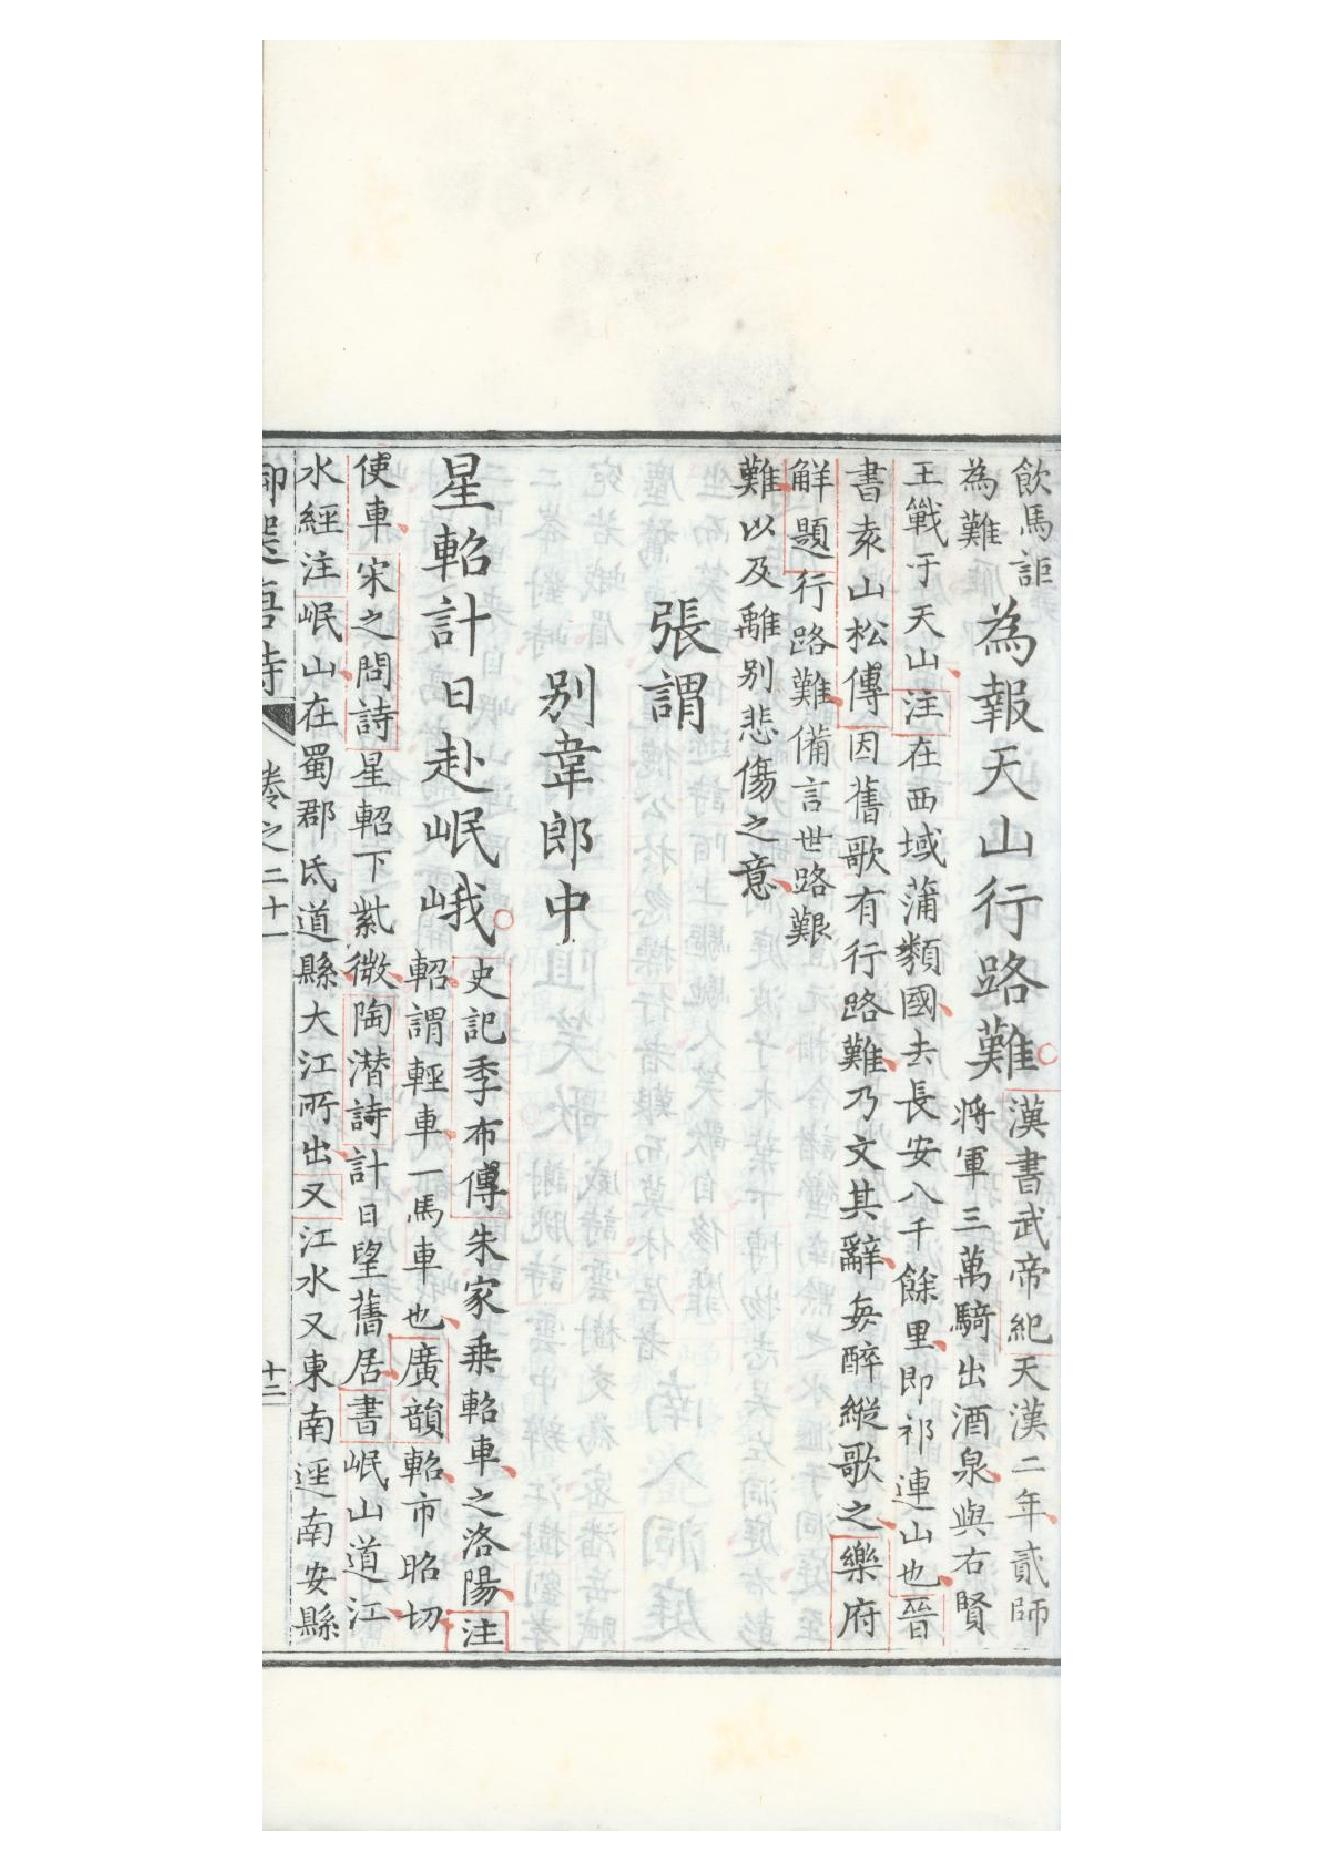 飲馬詎
為難
為報天山行路難
漢書武帝紀天漢二年貳師
將軍三萬騎出酒泉與右賢
王戰于天山注在西域蒲類國去長安八千餘里即祁連山也晉
書袁山松傳因舊歌有行路難乃文其辭每醉縱歌之樂府
解題行路難備言世路艱
難以及離別悲傷之意
張謂
別韋郎中
星軺計日赴岷峨
史記季布傳朱家乗軺車之洛陽注
軺謂輕車一馬車也廣韻軺市昭切
使車宋之問詩星軺下紫微陶潜詩計日望舊居書岷山道江
水經注岷山在蜀郡氐道縣大江所出又江水又東南逕南安縣
御選唐詩
卷之二十一
十二